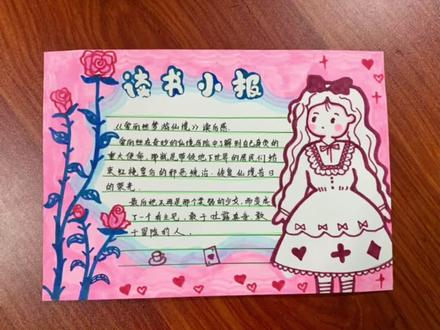 读书小报
《爱丽丝梦游仙境》读后感
爱丽丝在奇妙的仙境历险中了解到自己身负的
重大使命,那就是帮助地下世界的居民们结
束红桃皇后的邪恶统治,恢复仙境昔日
的荣光.
最后她不再是那个柔弱的少女,而变成
了一个有主见,敢于吐露真言,敢
于冒险的人.